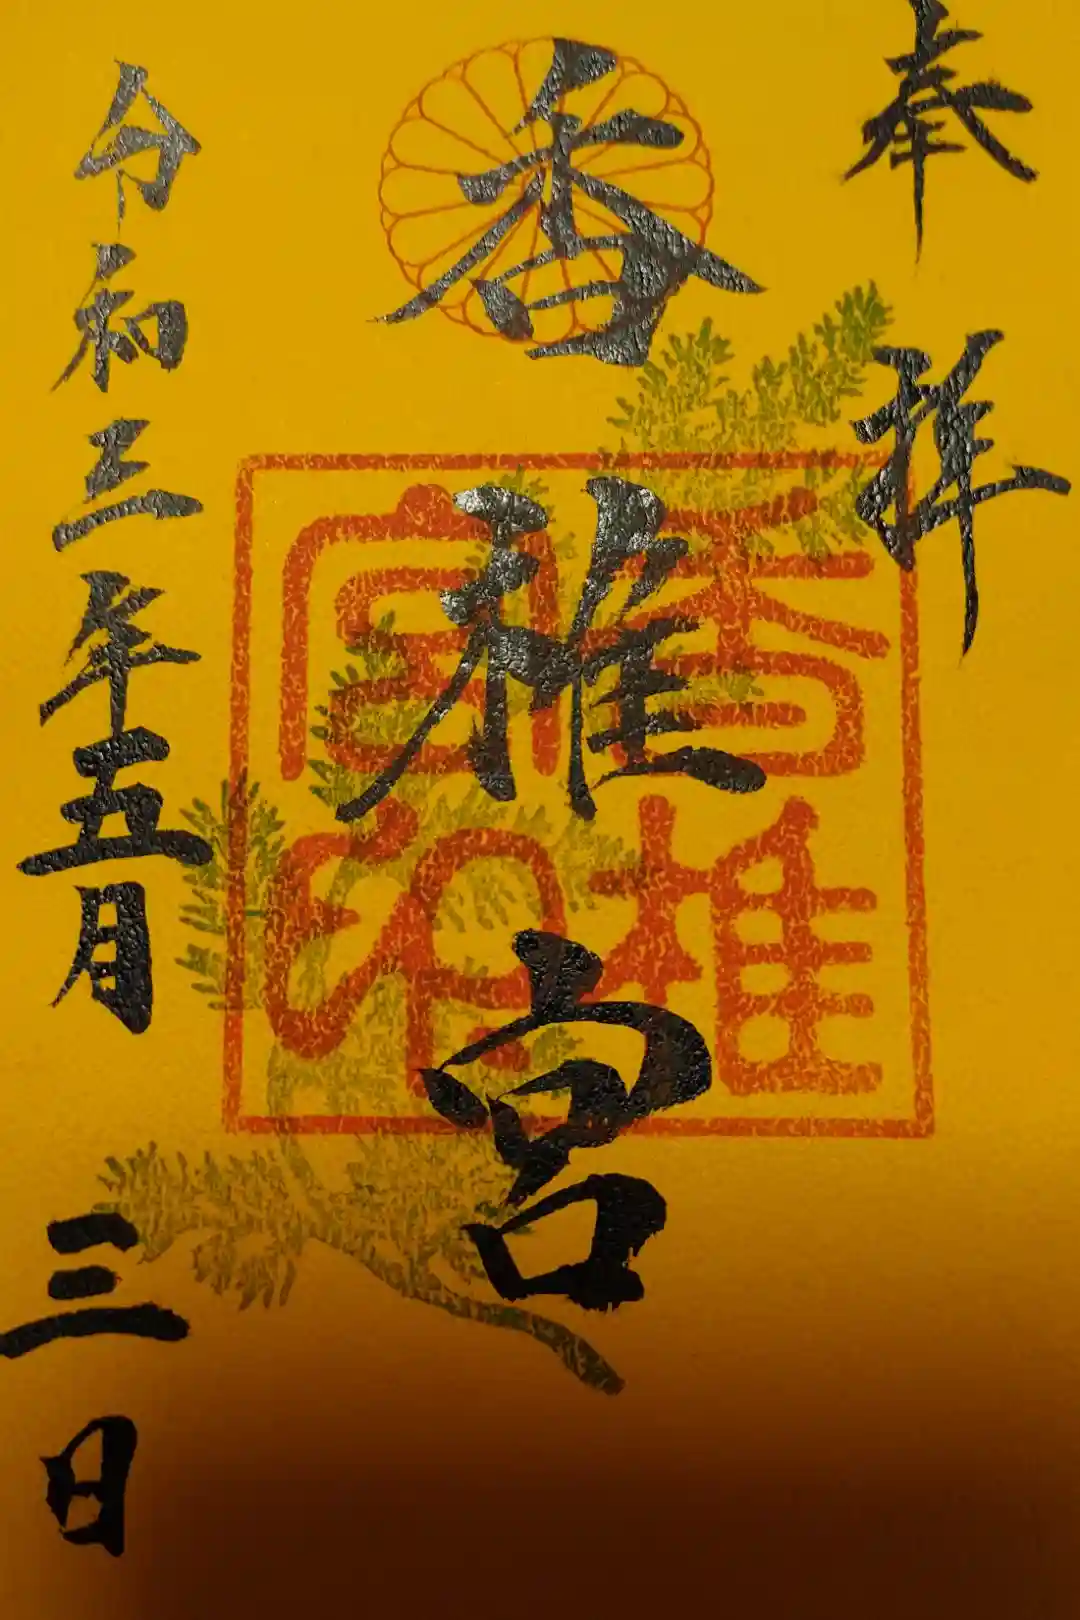 奉拝
香椎宮
香椎宮印
令和三年五月三日